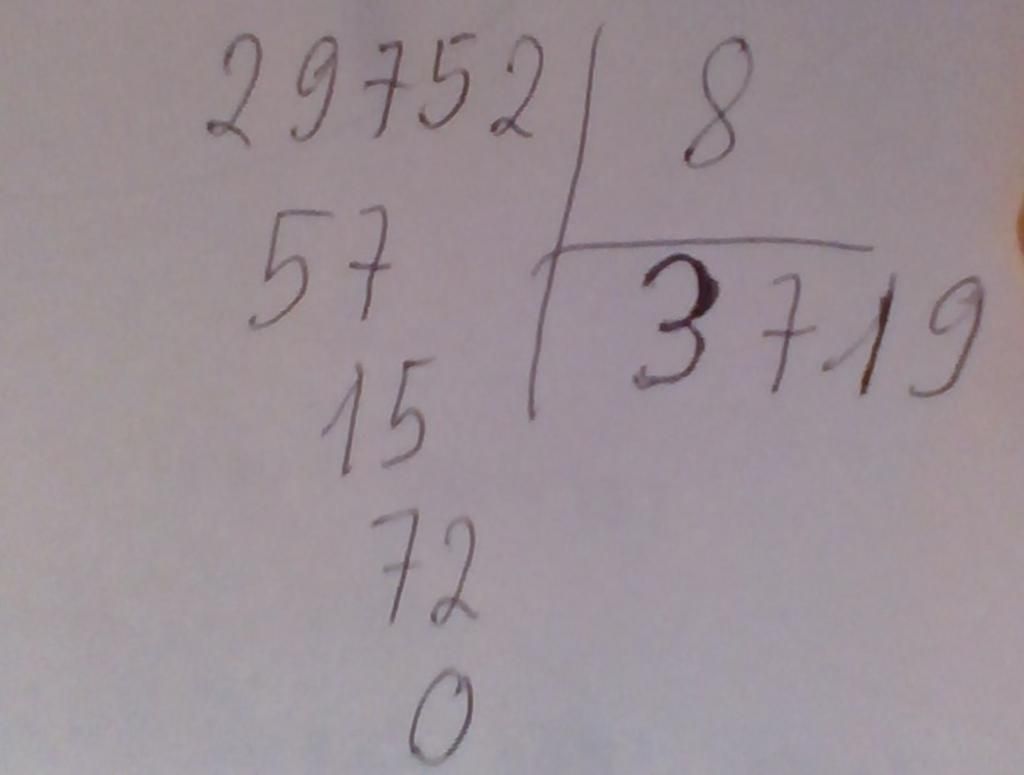 29752 8
57 3719
15
72
0